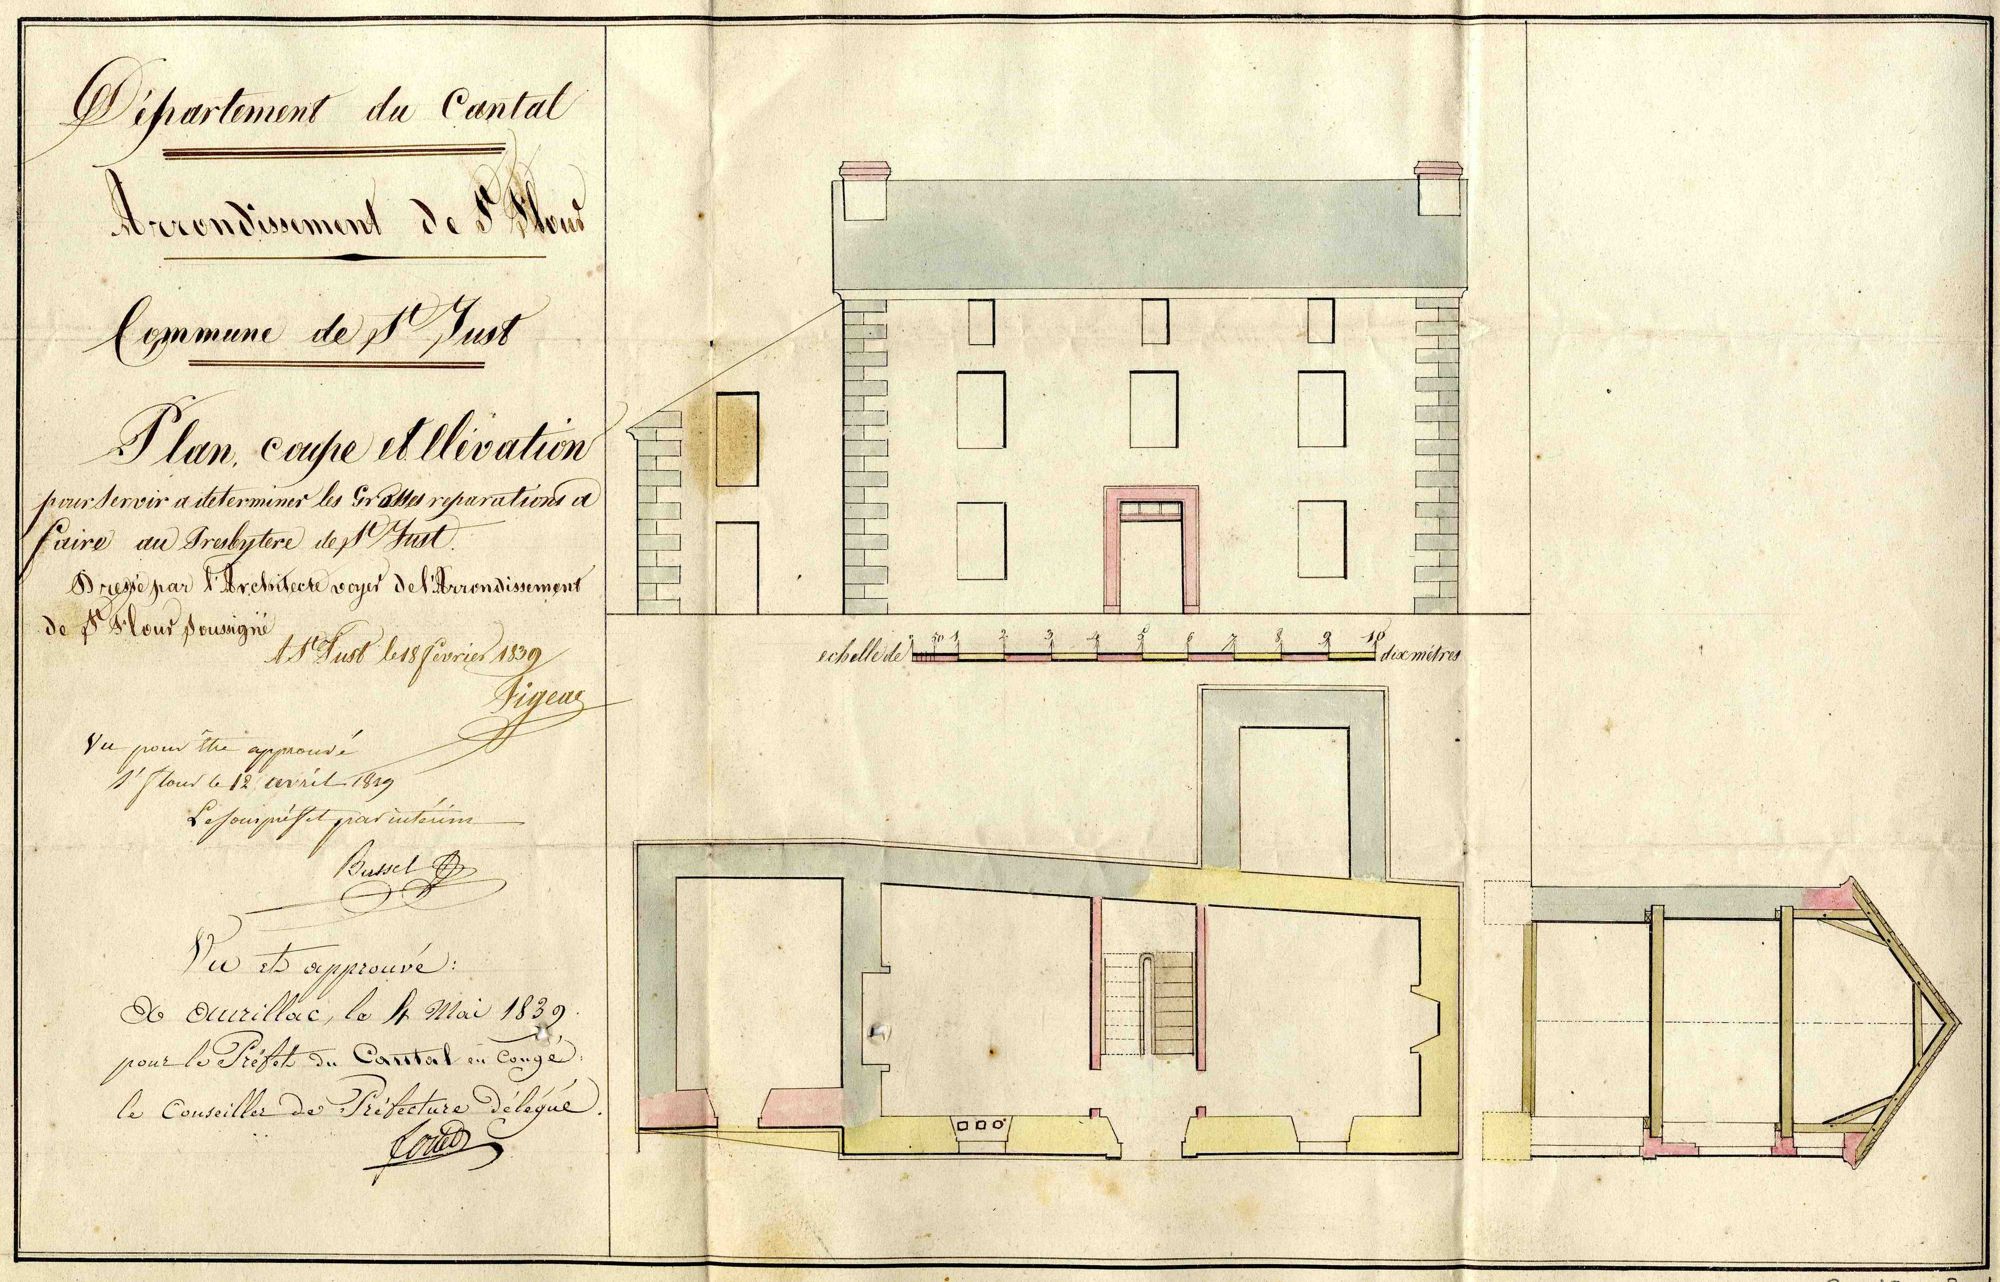 Département du Cantal
Arrondissement de St Flour
Commune de St Just
Plan, coupe et Elévation
pour servir a determiner les Grosses reparations a
faire au Presbytere de St Just.
Dressé par l'Architecte voyer de l'Arrondissement
de St Flour soussigné
A St Just le 18 février 1839
Figeac
Vu pour être approuvé
St flour le 12 avril 1839
Le sous préfet par intérim
Vu et approuvé :
A aurillac, le 4 Mai 1839.
pour le Préfet du Cantal en Congé :
le Conseiller de Préfecture délégué.
echelle de 50 1 2 3 4 5 6 7 8 9 10 dix métres